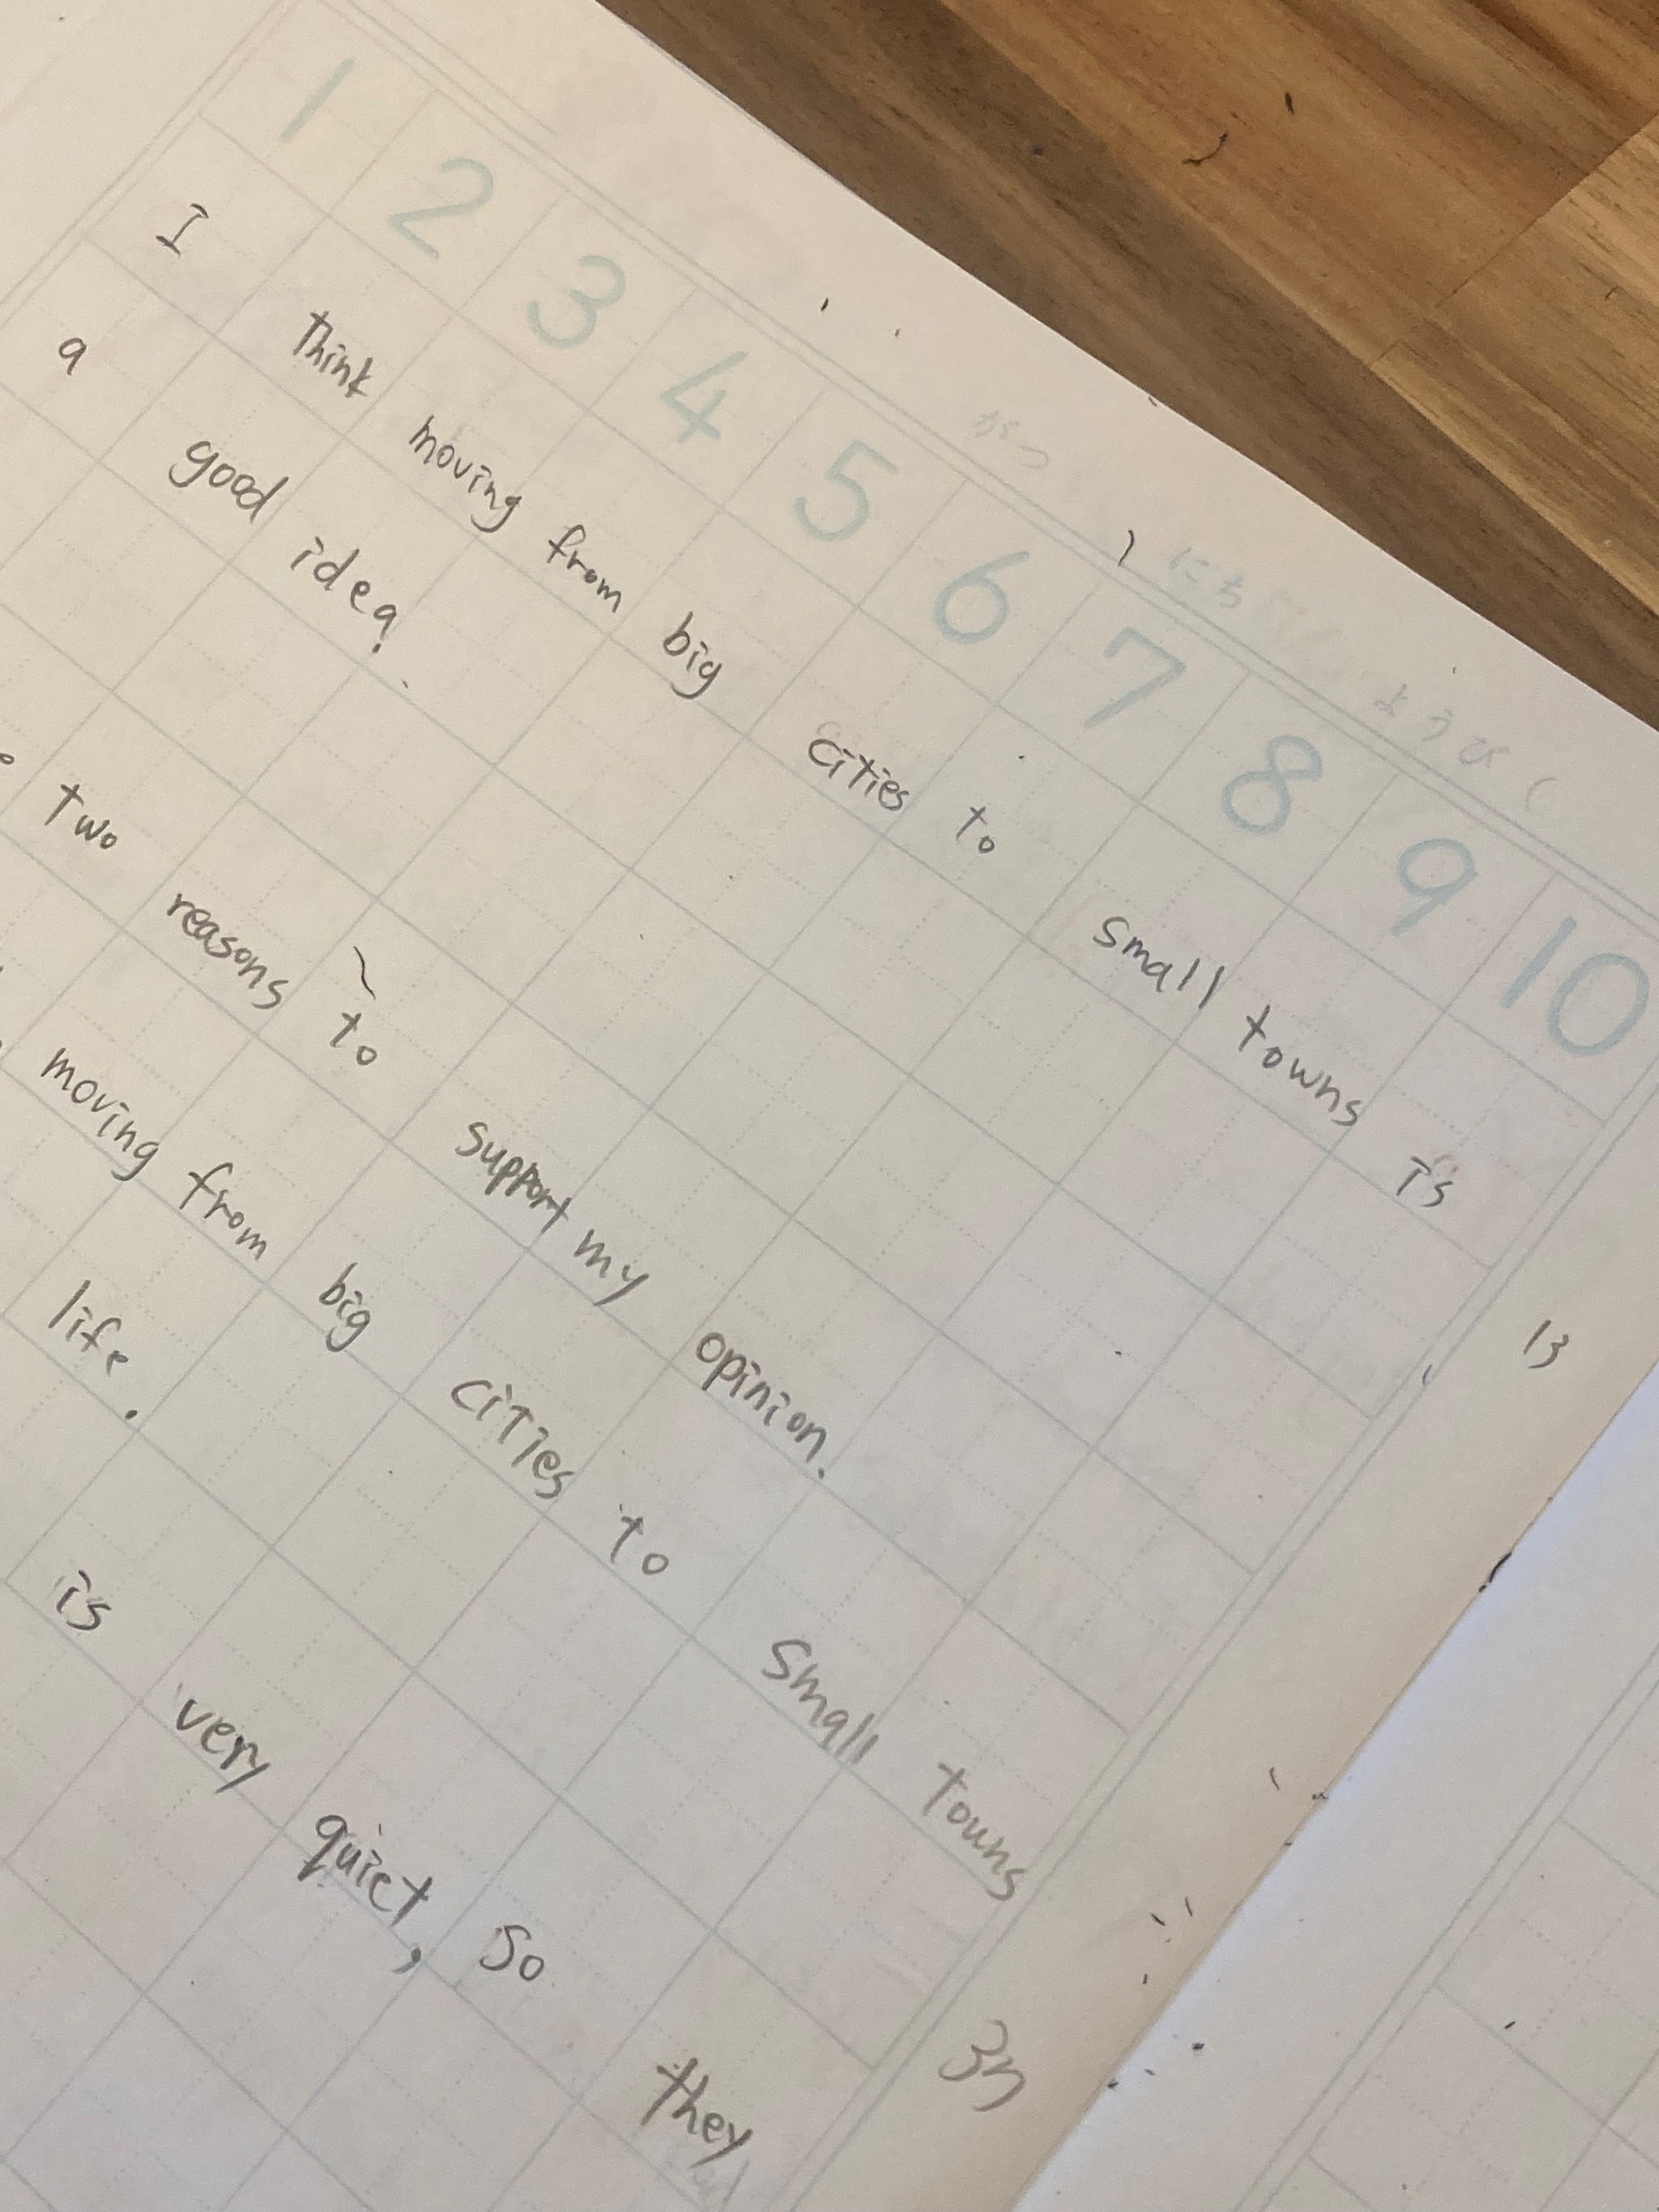 がつ にち ようび (
1 2 3 4 5 6 7 8 9 10
I think moving from big cities to small towns is
a good idea.
13
two reasons to support my opinion.
moving from big cities to small towns
life.
is very quiet, so they